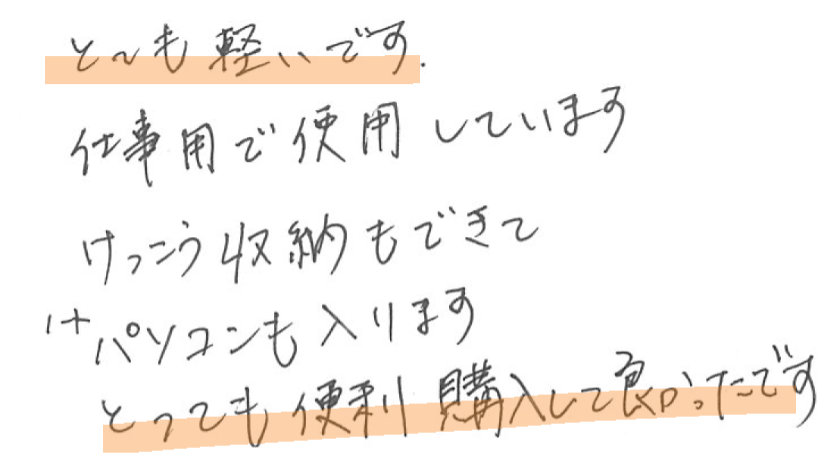 とても軽いです.
仕事用で使用しています
けっこう収納もできて
パソコンも入ります
とっても便利購入して良かったです